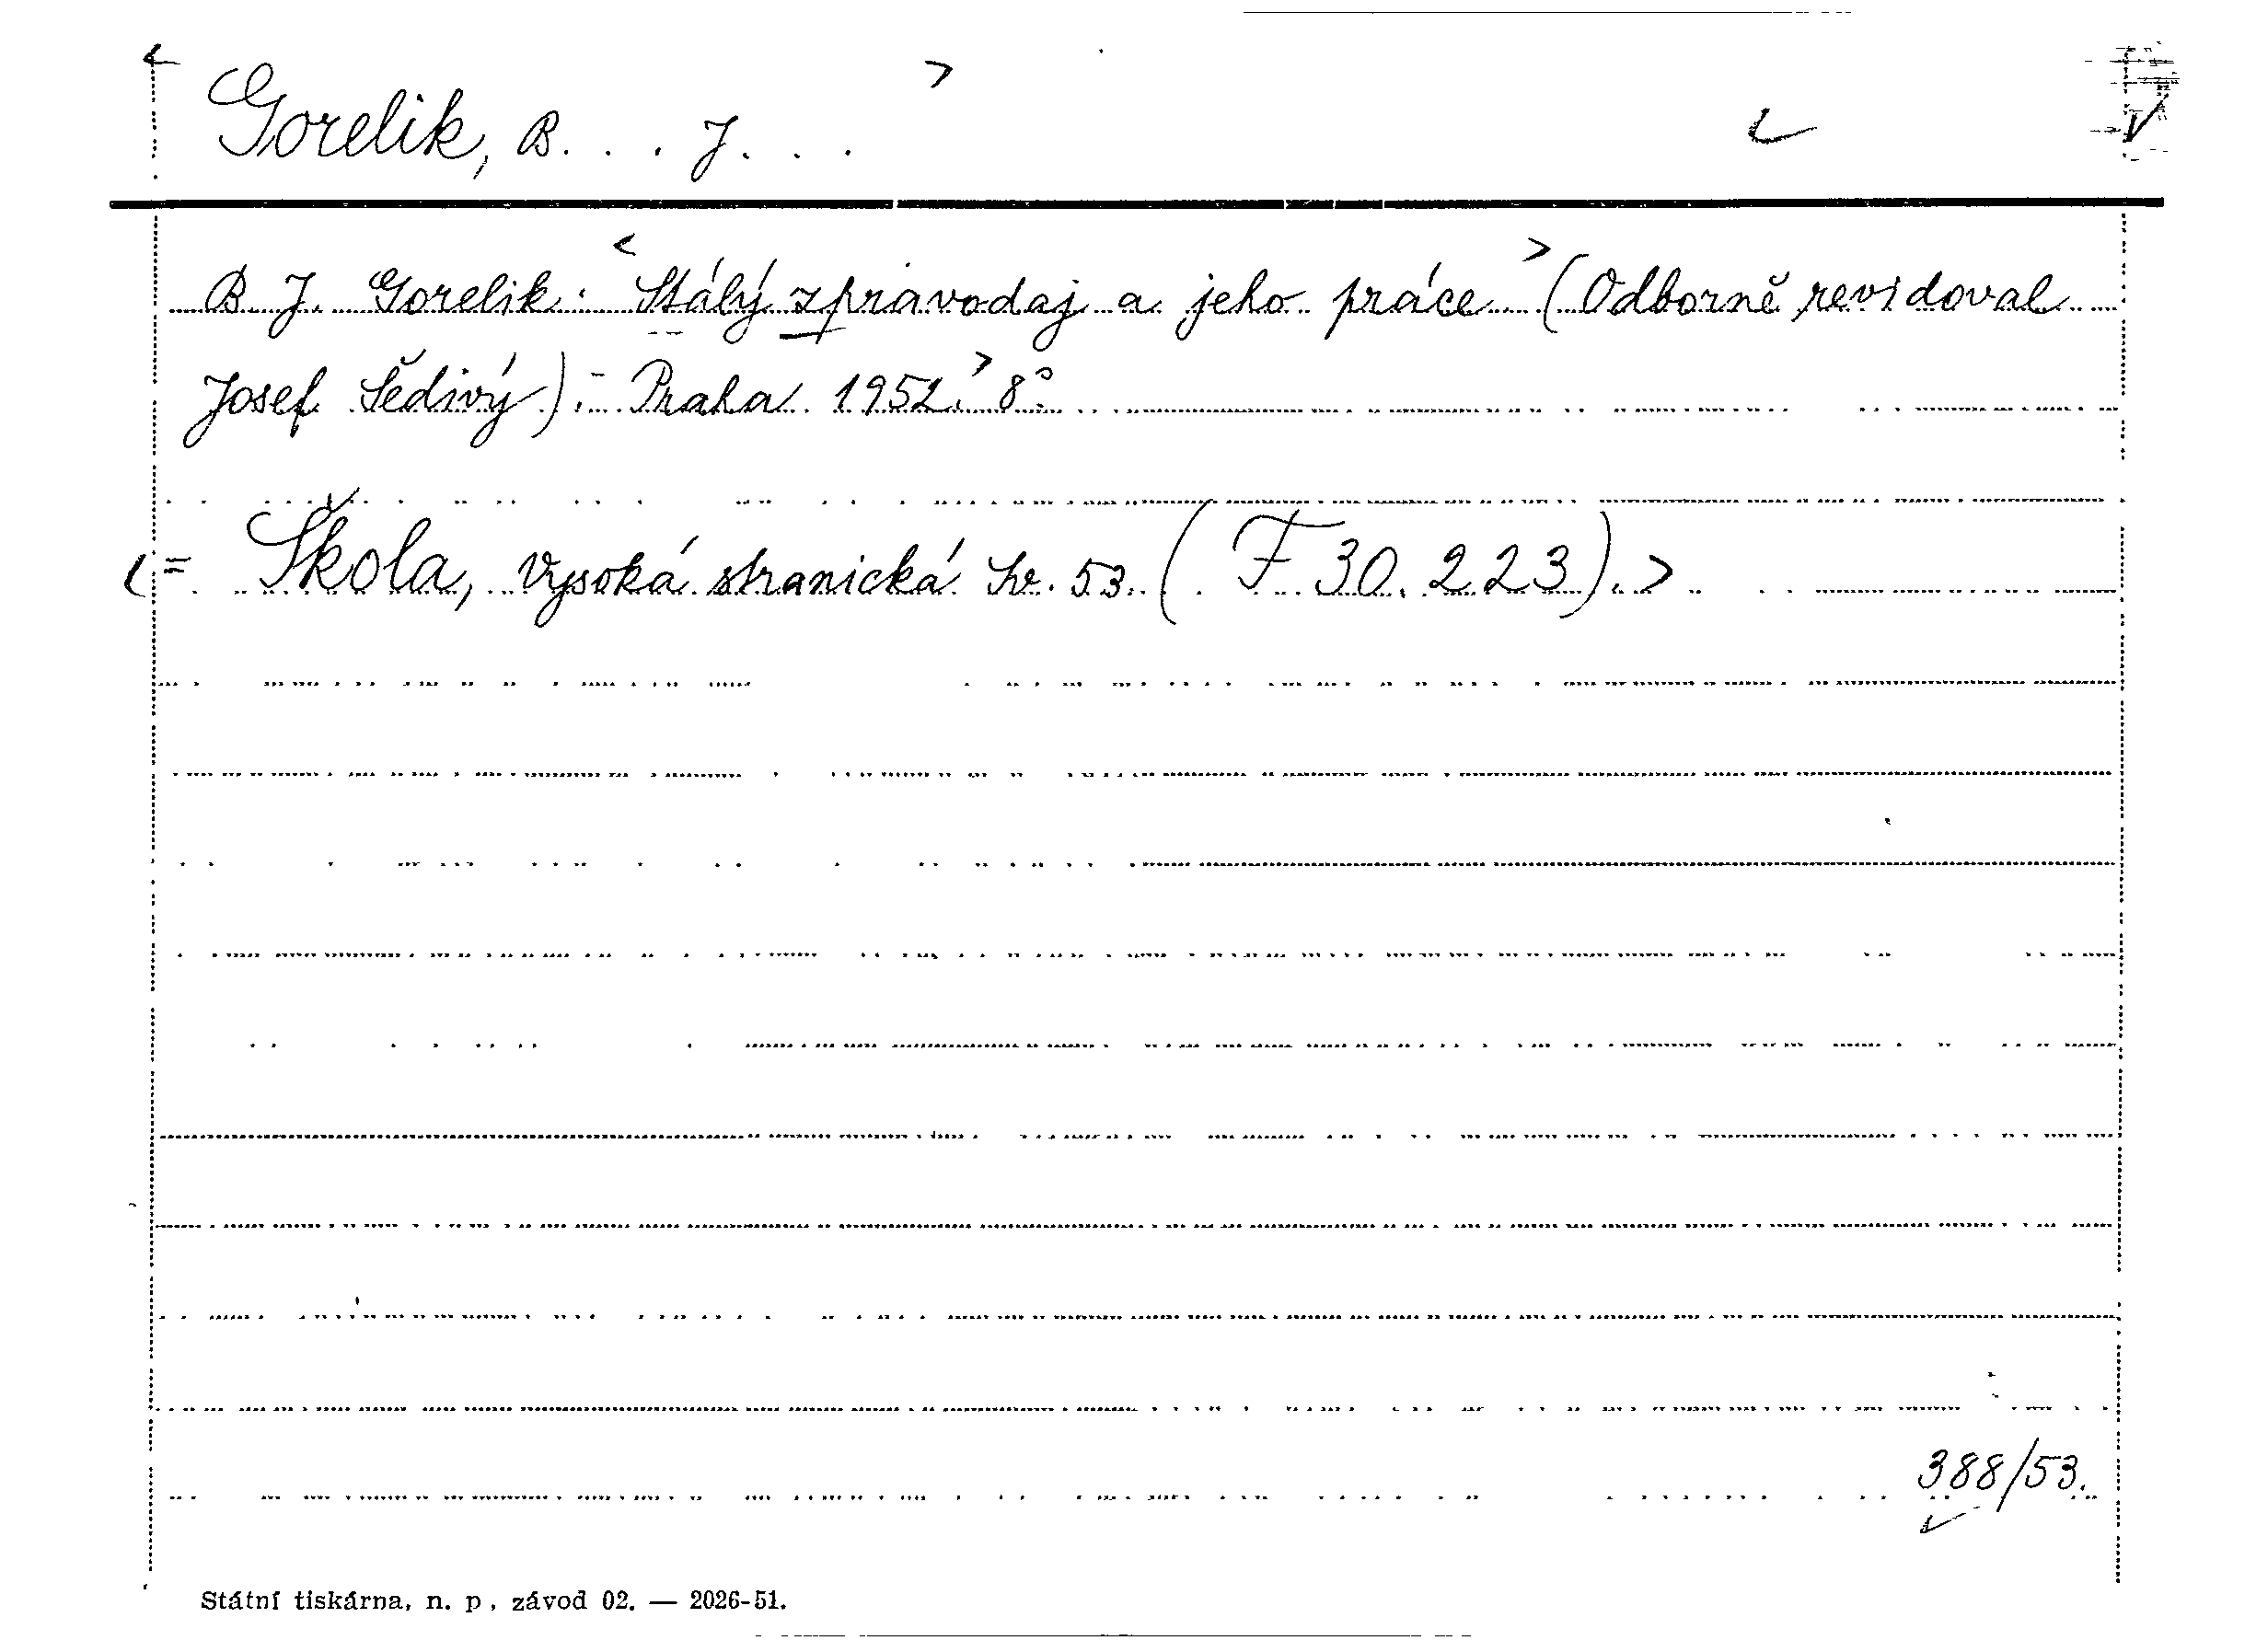 Gorelik, B. . . J. . .
B. J. Gorelik: Stálý zpravodaj a jeho práce (Odborně revidoval
Josef Šedivý). - Praha 1952. 8°.
= Škola, vysoká stranická Sv. 53. (F 30.223).
388/53.
Státní tiskárna, n. p., závod 02. — 2026-51.